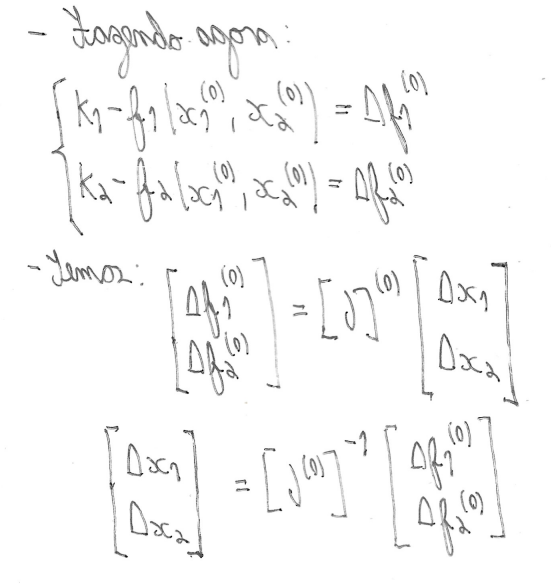 - Fazendo agora:
{ K₁ - f₁(x₁⁽⁰⁾, x₂⁽⁰⁾) = Δf₁⁽⁰⁾
K₂ - f₂(x₁⁽⁰⁾, x₂⁽⁰⁾) = Δf₂⁽⁰⁾
- Temos: [Δf₁⁽⁰⁾ Δf₂⁽⁰⁾] = [J]⁽⁰⁾ [Δx₁ Δx₂]
[Δx₁ Δx₂] = [J⁽⁰⁾]⁻¹ [Δf₁⁽⁰⁾ Δf₂⁽⁰⁾]